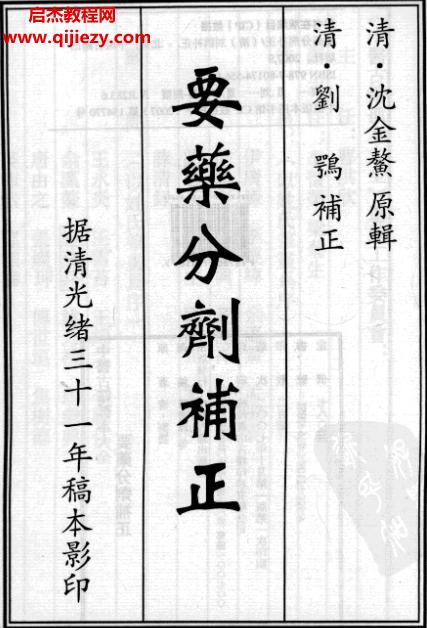 启杰教程网
www.qijiezy.cn
清·沈金鰲原輯
清·劉鶚補正
要藥分劑補正
据清光绪三十一年稿本影印